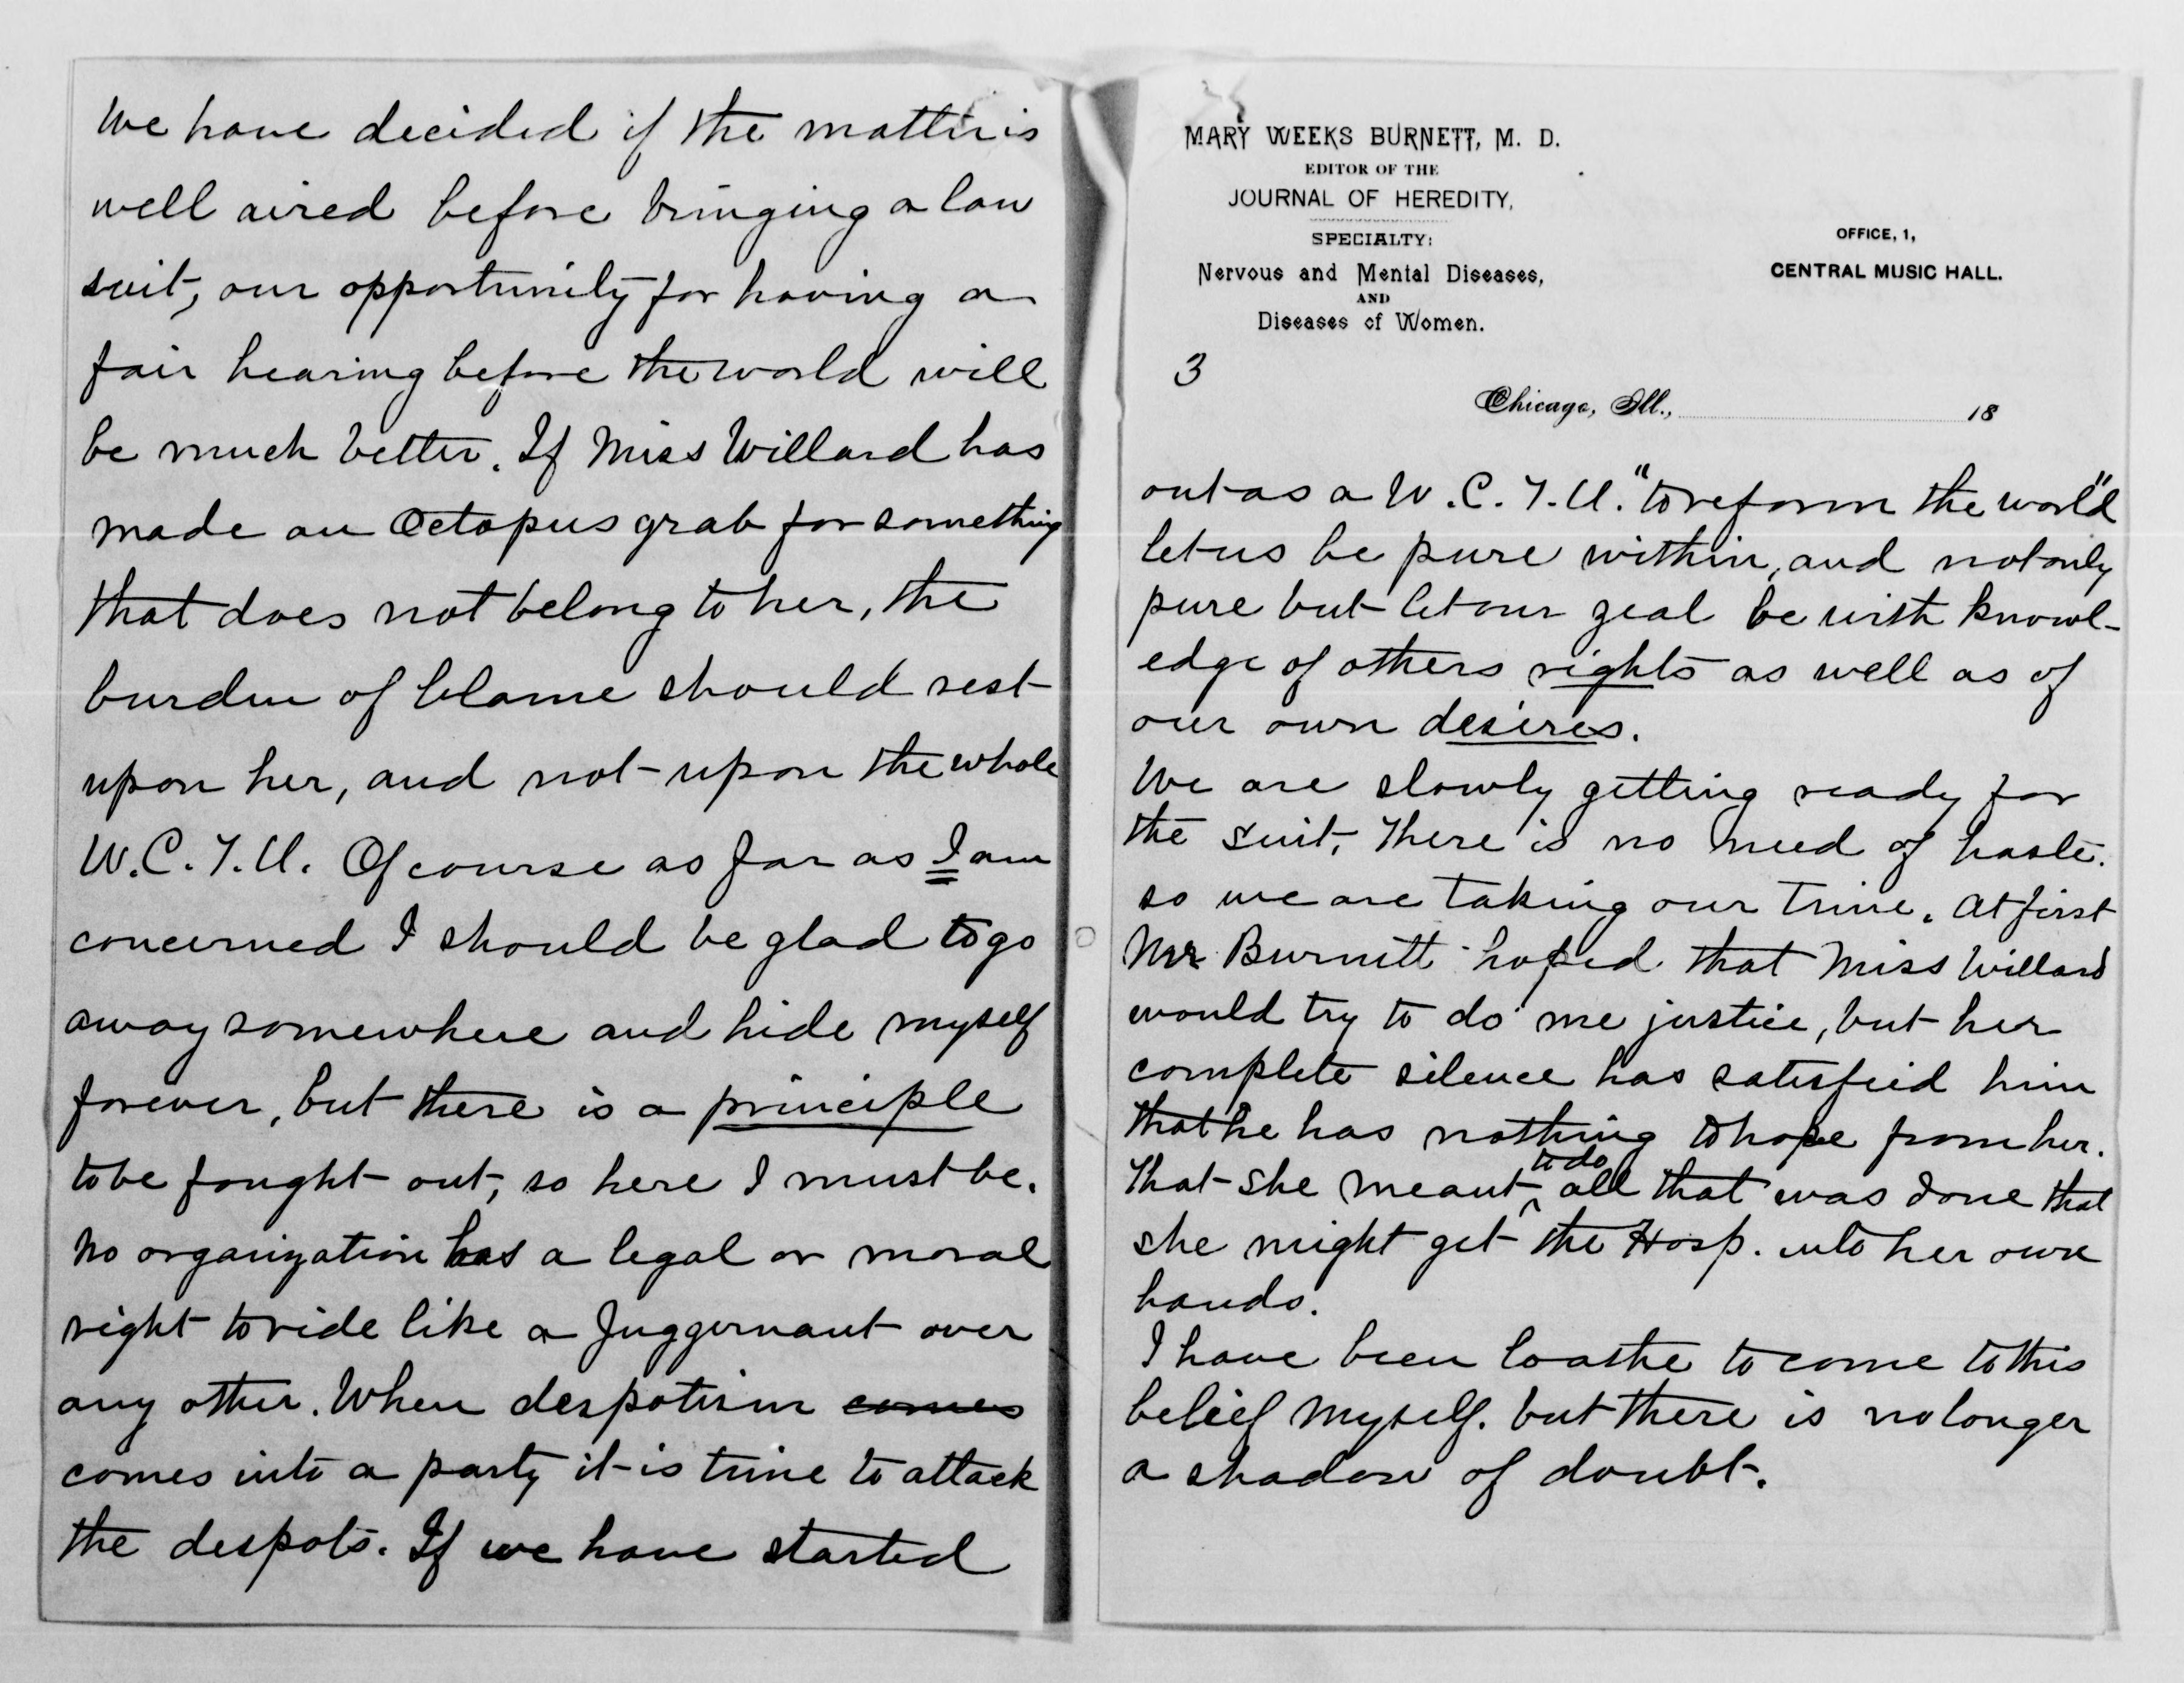 We have decided if the matter is
well aired before bringing a law
suit, our opportunity for having a
fair hearing before the world will
be much better. If Miss Willard has
made an Octopus grab for something
that does not belong to her, the
burden of blame should rest
upon her, and not upon the whole
W.C.T.U. Of course as far as I am
concerned I should be glad to go
away somewhere and hide myself
forever, but there is a principle
to be fought out, so here I must be.
No organization has a legal or moral
right to ride like a Juggernaut over
any other. When despotism comes
comes into a party it is time to attack
the despots. If we have started
MARY WEEKS BURNETT, M. D.
EDITOR OF THE
JOURNAL OF HEREDITY,
SPECIALTY:
Nervous and Mental Diseases,
AND
Diseases of Women.
OFFICE, 1,
CENTRAL MUSIC HALL.
3
Chicago, Ill., 18
out as a W.C.T.U. "to reform the world"
let us be pure within, and not only
pure but let our zeal be with knowl-
edge of others rights as well as of
our own desires.
We are slowly getting ready for
the suit, There is no need of haste.
so we are taking our time. At first
Mr Burnett hoped that Miss Willard
would try to do me justice, but her
complete silence has satisfied him
that he has nothing to hope from her.
That she meant to do all that was done that
she might get the Hosp. into her own
hands.
I have been loathe to come to this
belief myself. but there is no longer
a shadow of doubt.